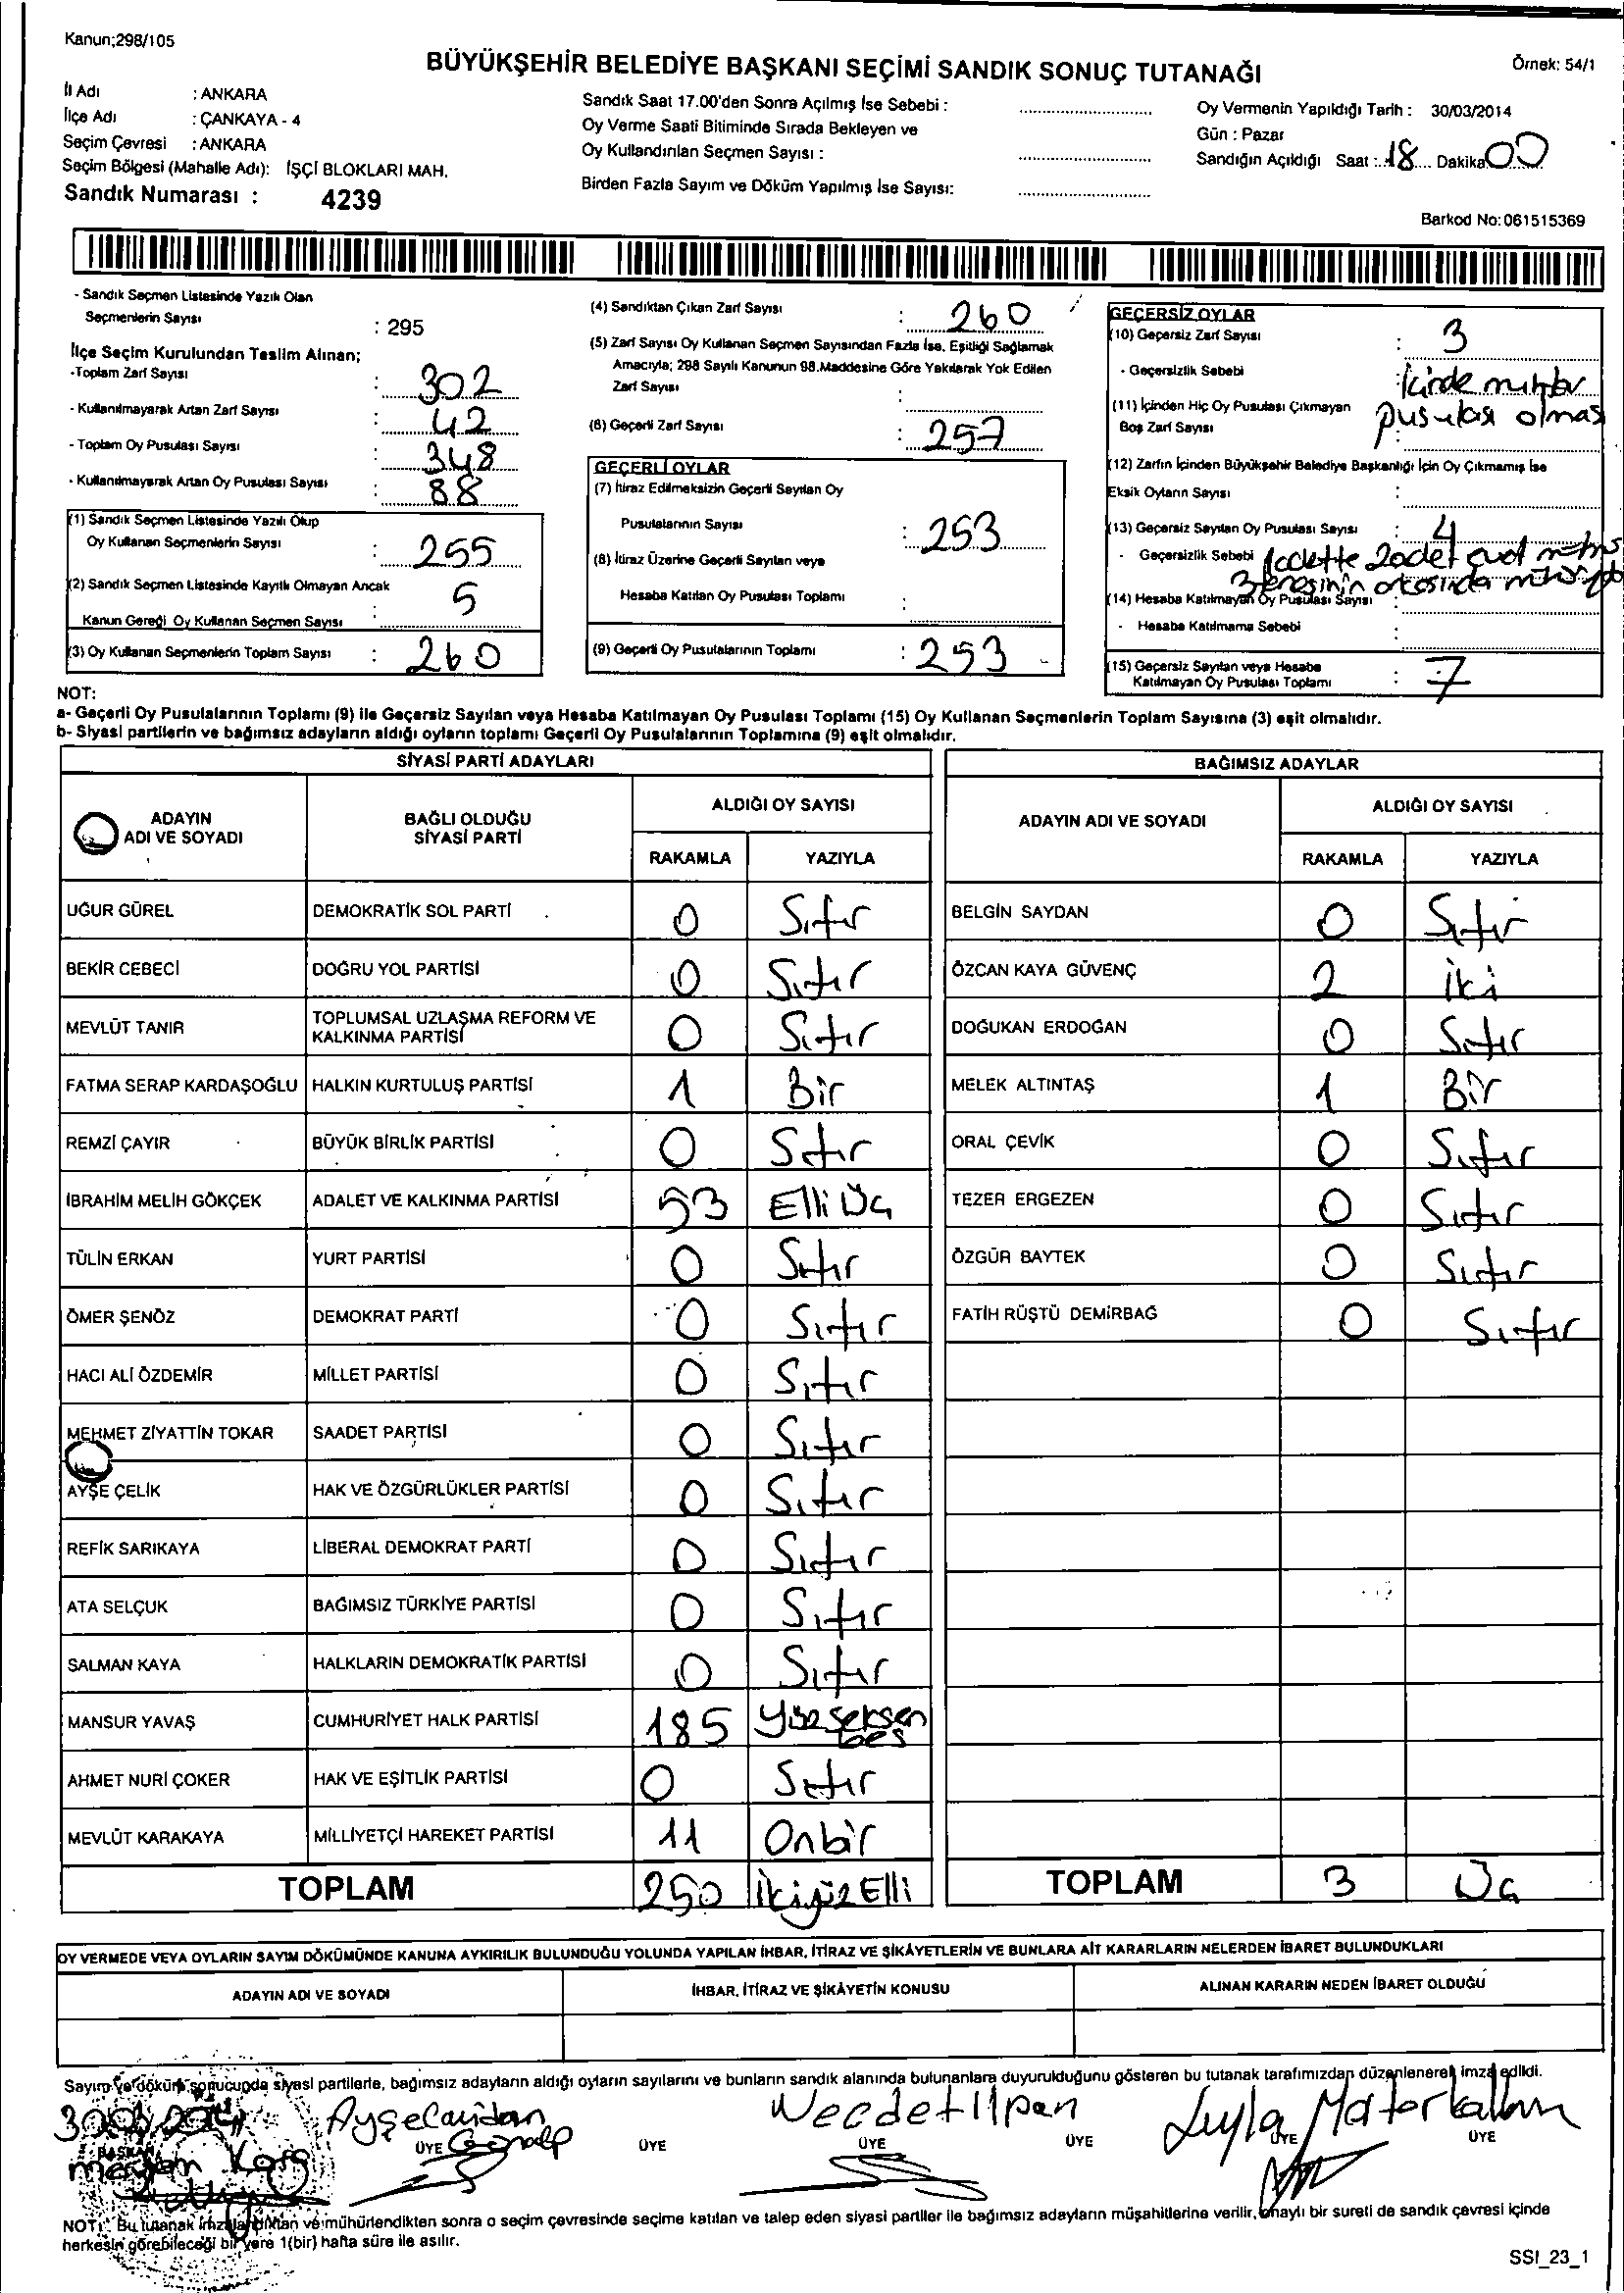 Kanun;298/105
BÜYÜKŞEHİR BELEDİYE BAŞKANI SEÇİMİ SANDIK SONUÇ TUTANAĞI
Örnek: 54/1
İl Adı : ANKARA
İlçe Adı : ÇANKAYA - 4
Seçim Çevresi : ANKARA
Seçim Bölgesi (Mahalle Adı): İŞÇİ BLOKLARI MAH.
Sandık Numarası : 4239
Sandık Saat 17.00'den Sonra Açılmış İse Sebebi :
Oy Verme Saati Bitiminde Sırada Bekleyen ve
Oy Kullandırılan Seçmen Sayısı :
Birden Fazla Sayım ve Döküm Yapılmış İse Sayısı:
Oy Vermenin Yapıldığı Tarih : 30/03/2014
Gün : Pazar
Sandığın Açıldığı Saat : 18 Dakika 00
Barkod No: 061515369
- Sandık Seçmen Listesinde Yazılı Olan
Seçmenlerin Sayısı : 295
İlçe Seçim Kurulundan Teslim Alınan;
-Toplam Zarf Sayısı : 302
- Kullanılmayarak Artan Zarf Sayısı : 42
- Toplam Oy Pusulası Sayısı : 348
- Kullanılmayarak Artan Oy Pusulası Sayısı : 88
(1) Sandık Seçmen Listesinde Yazılı Olup
Oy Kullanan Seçmenlerin Sayısı : 255
(2) Sandık Seçmen Listesinde Kayıtlı Olmayan Ancak
Kanun Gereği Oy Kullanan Seçmen Sayısı : 5
(3) Oy Kullanan Seçmenlerin Toplam Sayısı : 260
(4) Sandıktan Çıkan Zarf Sayısı : 260
(5) Zarf Sayısı Oy Kullanan Seçmen Sayısından Fazla İse, Eşitliği Sağlamak
Amacıyla; 298 Sayılı Kanunun 98.Maddesine Göre Yakılarak Yok Edilen
Zarf Sayısı :
(6) Geçerli Zarf Sayısı : 257
GEÇERLİ OYLAR
(7) İtiraz Edilmeksizin Geçerli Sayılan Oy
Pusulalarının Sayısı : 253
(8) İtiraz Üzerine Geçerli Sayılan veya
Hesaba Katılan Oy Pusulası Toplamı :
(9) Geçerli Oy Pusulalarının Toplamı : 253
GEÇERSİZ OYLAR
(10) Geçersiz Zarf Sayısı : 3
- Geçersizlik Sebebi : İçinde mühür
(11) İçinden Hiç Oy Pusulası Çıkmayan pusulası olması
Boş Zarf Sayısı :
(12) Zarfın İçinden Büyükşehir Belediye Başkanlığı İçin Oy Çıkmamış İse
Eksik Oyların Sayısı :
(13) Geçersiz Sayılan Oy Pusulası Sayısı : 4
- Geçersizlik Sebebi 1 adette 2 adet
(14) Hesaba Katılmayan Oy Pusulası Sayısı :
- Hesaba Katılmama Sebebi :
(15) Geçersiz Sayılan veya Hesaba
Katılmayan Oy Pusulası Toplamı : 7
NOT:
a- Geçerli Oy Pusulalarının Toplamı (9) ile Geçersiz Sayılan veya Hesaba Katılmayan Oy Pusulası Toplamı (15) Oy Kullanan Seçmenlerin Toplam Sayısına (3) eşit olmalıdır.
b- Siyasi partilerin ve bağımsız adayların aldığı oyların toplamı Geçerli Oy Pusulalarının Toplamına (9) eşit olmalıdır.
SİYASİ PARTİ ADAYLARI
ADAYIN ADI VE SOYADI
BAĞLI OLDUĞU SİYASİ PARTİ
ALDIĞI OY SAYISI
RAKAMLA YAZIYLA
UĞUR GÜREL DEMOKRATİK SOL PARTİ 0 Sıfır
BEKİR CEBECİ DOĞRU YOL PARTİSİ 0 Sıfır
MEVLÜT TANIR TOPLUMSAL UZLAŞMA REFORM VE KALKINMA PARTİSİ 0 Sıfır
FATMA SERAP KARDAŞOĞLU HALKIN KURTULUŞ PARTİSİ 1 Bir
REMZİ ÇAYIR BÜYÜK BİRLİK PARTİSİ 0 Sıfır
İBRAHİM MELİH GÖKÇEK ADALET VE KALKINMA PARTİSİ 53 Elli Üç
TÜLİN ERKAN YURT PARTİSİ 0 Sıfır
ÖMER ŞENÖZ DEMOKRAT PARTİ 0 Sıfır
HACI ALİ ÖZDEMİR MİLLET PARTİSİ 0 Sıfır
MEHMET ZİYATTİN TOKAR SAADET PARTİSİ 0 Sıfır
AYŞE ÇELİK HAK VE ÖZGÜRLÜKLER PARTİSİ 0 Sıfır
REFİK SARIKAYA LİBERAL DEMOKRAT PARTİ 0 Sıfır
ATA SELÇUK BAĞIMSIZ TÜRKİYE PARTİSİ 0 Sıfır
SALMAN KAYA HALKLARIN DEMOKRATİK PARTİSİ 0 Sıfır
MANSUR YAVAŞ CUMHURİYET HALK PARTİSİ 185 Yüzseksen beş
AHMET NURİ ÇOKER HAK VE EŞİTLİK PARTİSİ 0 Sıfır
MEVLÜT KARAKAYA MİLLİYETÇİ HAREKET PARTİSİ 11 Onbir
TOPLAM 250 İkiyüz Elli
BAĞIMSIZ ADAYLAR
ADAYIN ADI VE SOYADI
ALDIĞI OY SAYISI
RAKAMLA YAZIYLA
BELGİN SAYDAN 0 Sıfır
ÖZCAN KAYA GÜVENÇ 2 İki
DOĞUKAN ERDOĞAN 0 Sıfır
MELEK ALTINTAŞ 1 Bir
ORAL ÇEVİK 0 Sıfır
TEZER ERGEZEN 0 Sıfır
ÖZGÜR BAYTEK 0 Sıfır
FATİH RÜŞTÜ DEMİRBAĞ 0 Sıfır
TOPLAM 3 Üç
OY VERMEDE VEYA OYLARIN SAYIM DÖKÜMÜNDE KANUNA AYKIRILIK BULUNDUĞU YOLUNDA YAPILAN İHBAR, İTİRAZ VE ŞİKÂYETLERİN VE BUNLARA AİT KARARLARIN NELERDEN İBARET BULUNDUKLARI
ADAYIN ADI VE SOYADI
İHBAR, İTİRAZ VE ŞİKÂYETİN KONUSU
ALINAN KARARIN NEDEN İBARET OLDUĞU
Sayım ve döküm sonucunda siyasi partilerle, bağımsız adayların aldığı oyların sayılarını ve bunların sandık alanında bulunanlara duyurulduğunu gösteren bu tutanak tarafımızdan düzenlenerek imza edildi.
Necdet Ilpen
BAŞKAN ÜYE ÜYE ÜYE ÜYE ÜYE ÜYE
NOT: Bu tutanak imzalandıktan ve mühürlendikten sonra o seçim çevresinde seçime katılan ve talep eden siyasi partiler ile bağımsız adayların müşahitlerine verilir, onaylı bir sureti de sandık çevresi içinde
herkesin görebileceği bir yere 1(bir) hafta süre ile asılır.
SSI_23_1